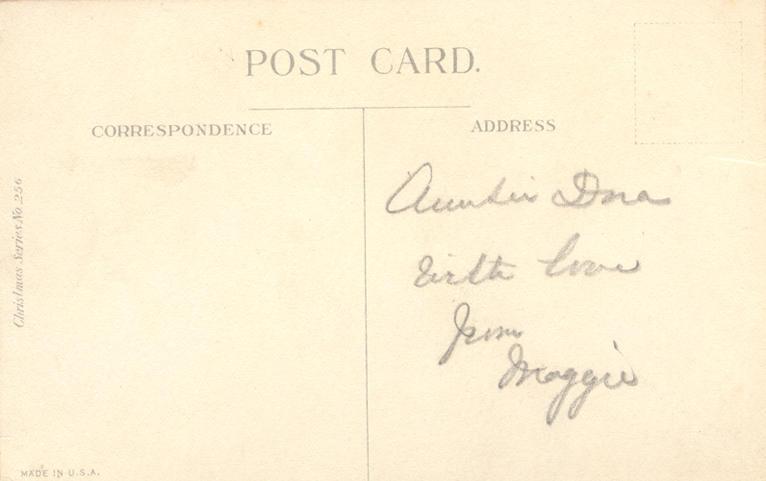 POST CARD.
CORRESPONDENCE
ADDRESS
Christmas Series No 256
Auntie Dora
with love
from
Maggie
MADE IN U.S.A.